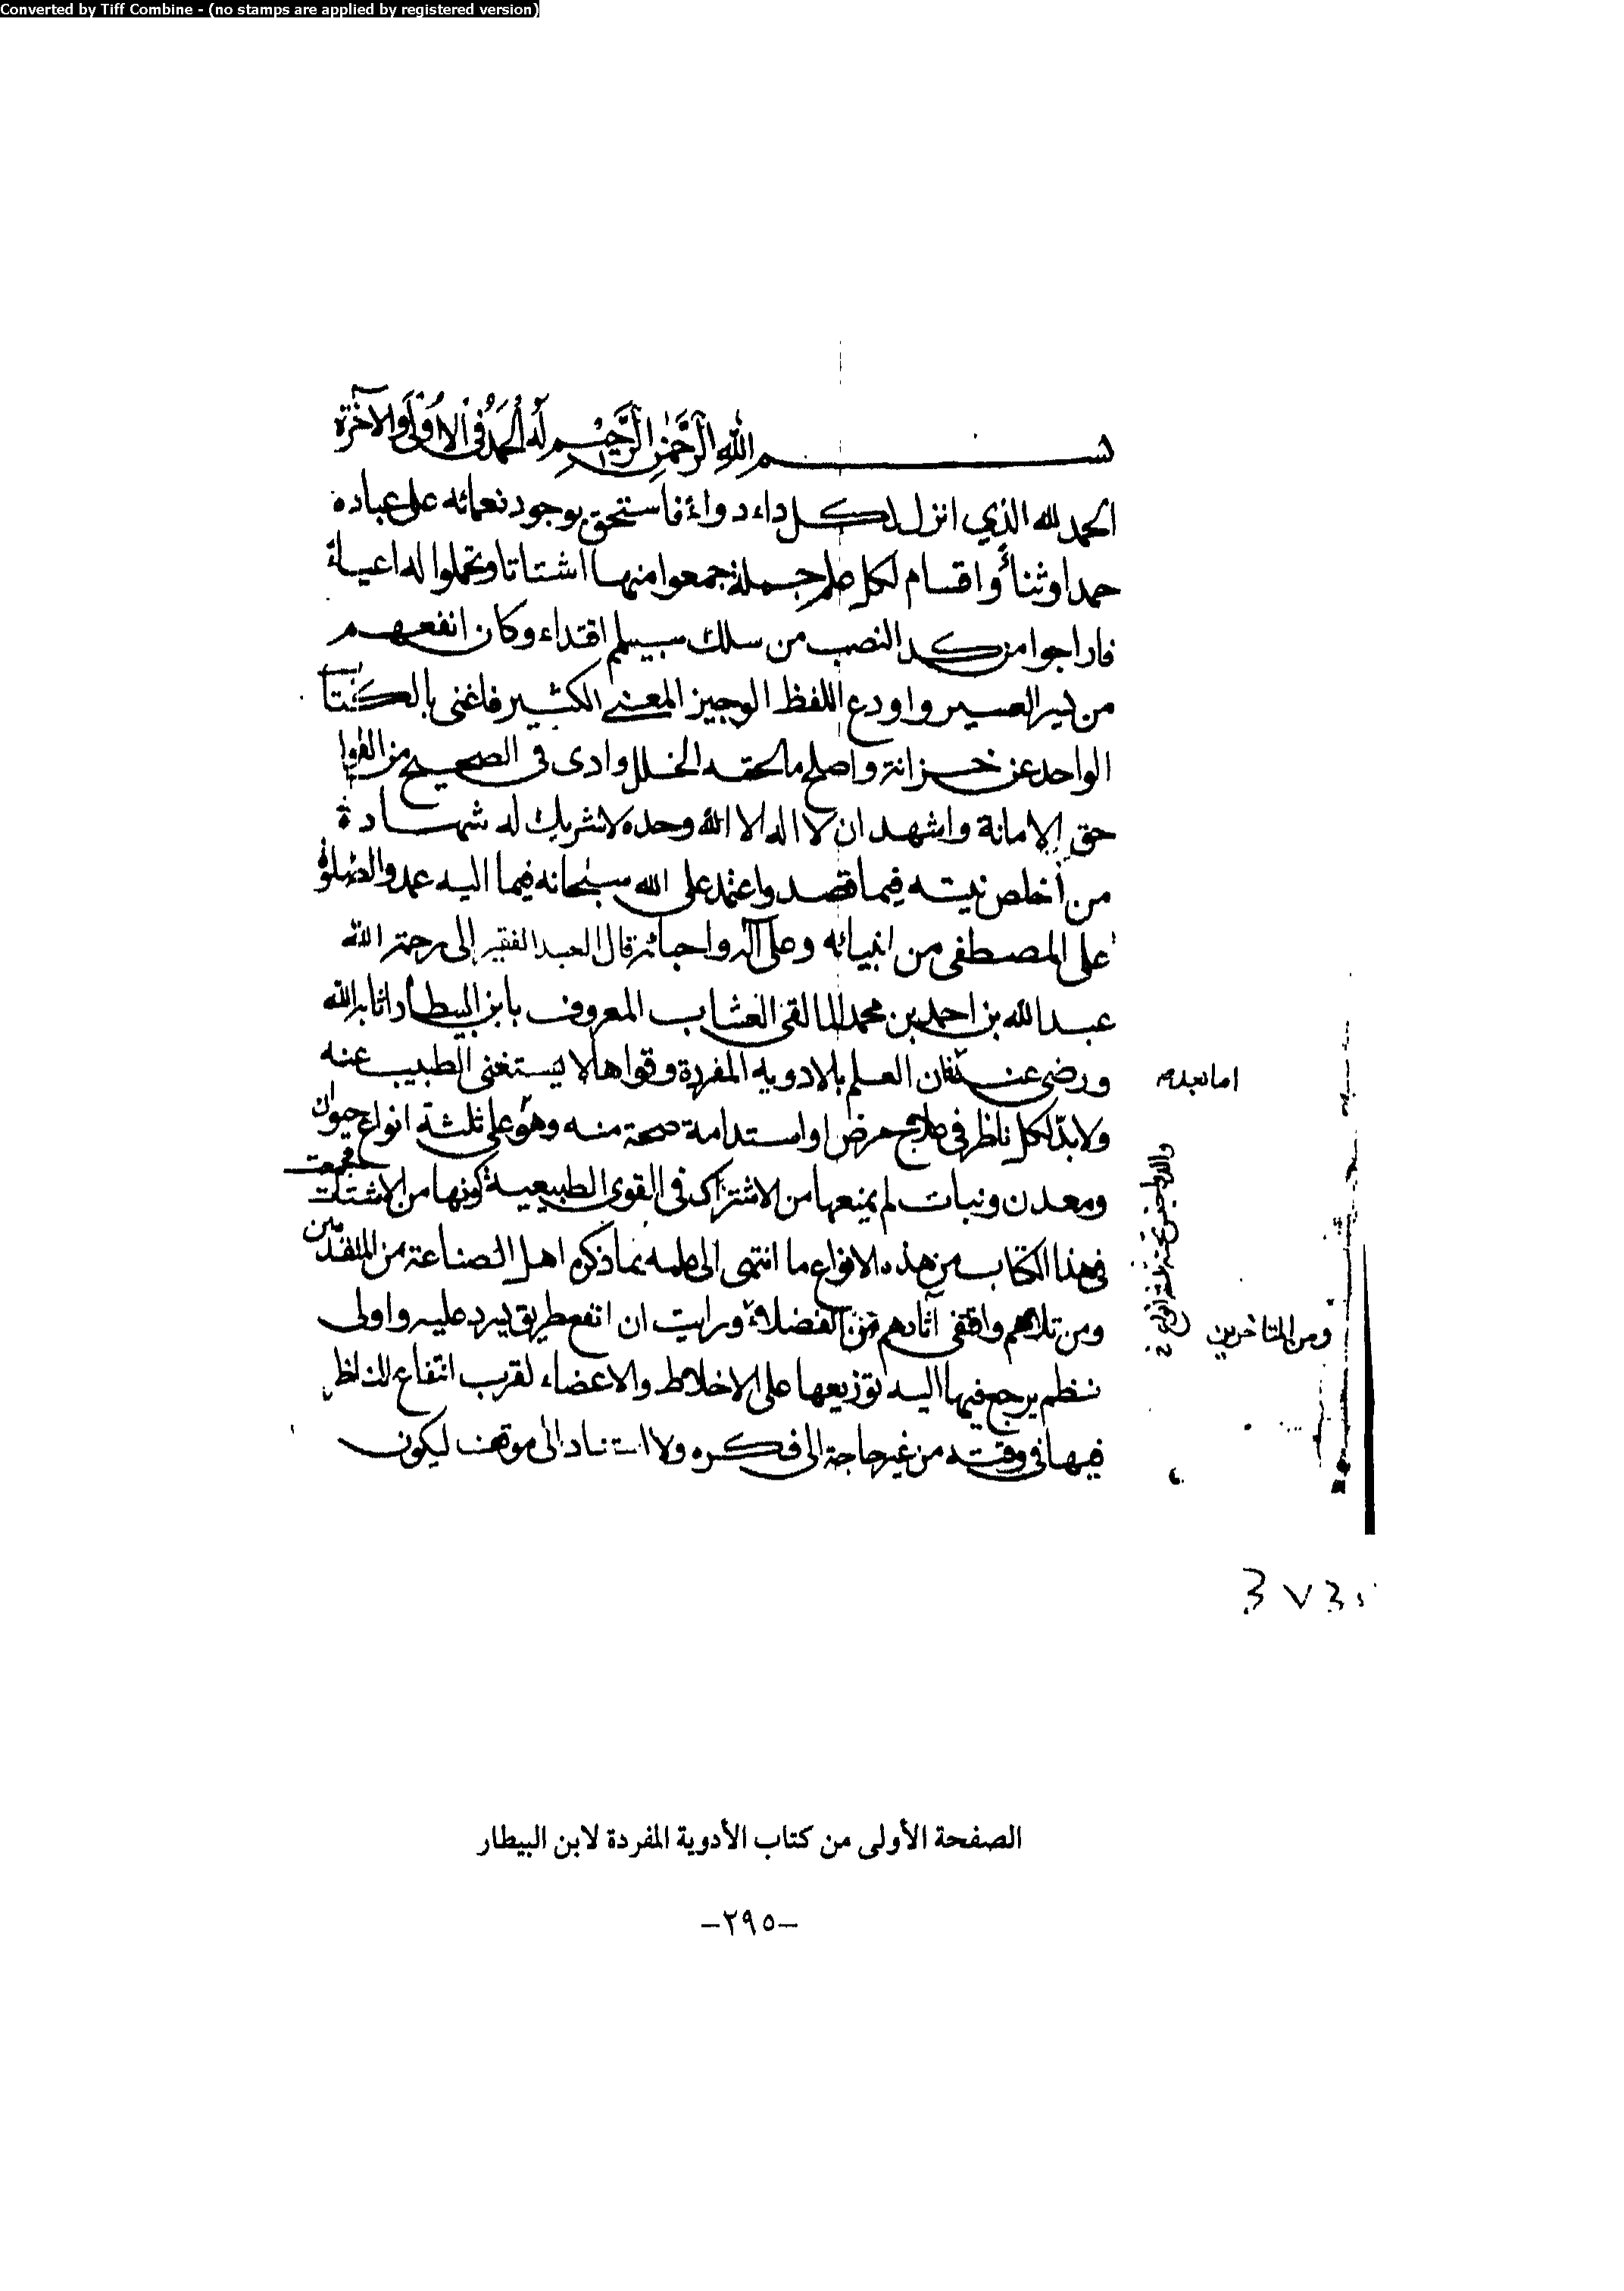 Converted by Tiff Combine - (no stamps are applied by registered version)
بسم الله الرحمن الرحيم له الحمد في الاولى والآخرة
الحمد لله الذي انزل لكل داء دواء فاستحق بوجود نعمائه على عباده
حمدا وثناء واقسام لكل علم جملة جمعوا منها اشتاتا وتحملوا له اعباء
فاراحوا من كد النصب من سلك سبيلهم اقتداء وكان انفعهم
من يسر العسير واودع اللفظ الوجيز المعنى الكثير فاغنى بالكتاب
الواحد عن خزانة واصلح ما لحقه الخلل وادى في الصحيح من
حق الامانة واشهد ان لا اله الا الله وحده لا شريك له شهادة
من أخلص نيته فيما قصد واعتمد على الله سبحانه فيما اليه عمد والصلوة
على المصطفى من انبيائه وعلى آله واحبائه قال العبد الفقير إلى رحمة الله
عبد الله بن احمد بن محمد المالقي العشاب المعروف بابن البيطار اثابه الله
ورضي عنه فان العلم بالادويه المفردة وقواها لا يستغنى الطبيب عنه
اما بعد
ولا بد لكل ناظر في علاج مرض او استدامة صحة منه وهو على ثلثة انواع حيوان
ومعدن ونبات لم يمنعها من الاشتراك في القوى الطبيعية كونها من الاشتات فجمعت
في هذا الكتاب من هذه الانواع ما انتهى الى علمه مما ذكره اهل الصناعة من المتقدمين
ومن تلاهم واقتفى آثارهم من الفضلاء ورايت ان انفع طريق يرد عليه واولى
ومن المتاخرين
نظم يرجع فيها اليه توزيعها على الاخلاط والاعضاء لقرب انتفاع الناظر
فيها في وقته من غير حاجة الى فكره ولا استناد الى موقف ليكون
الصفحة الأولى من كتاب الأدوية المفردة لابن البيطار
–٢٩٥–